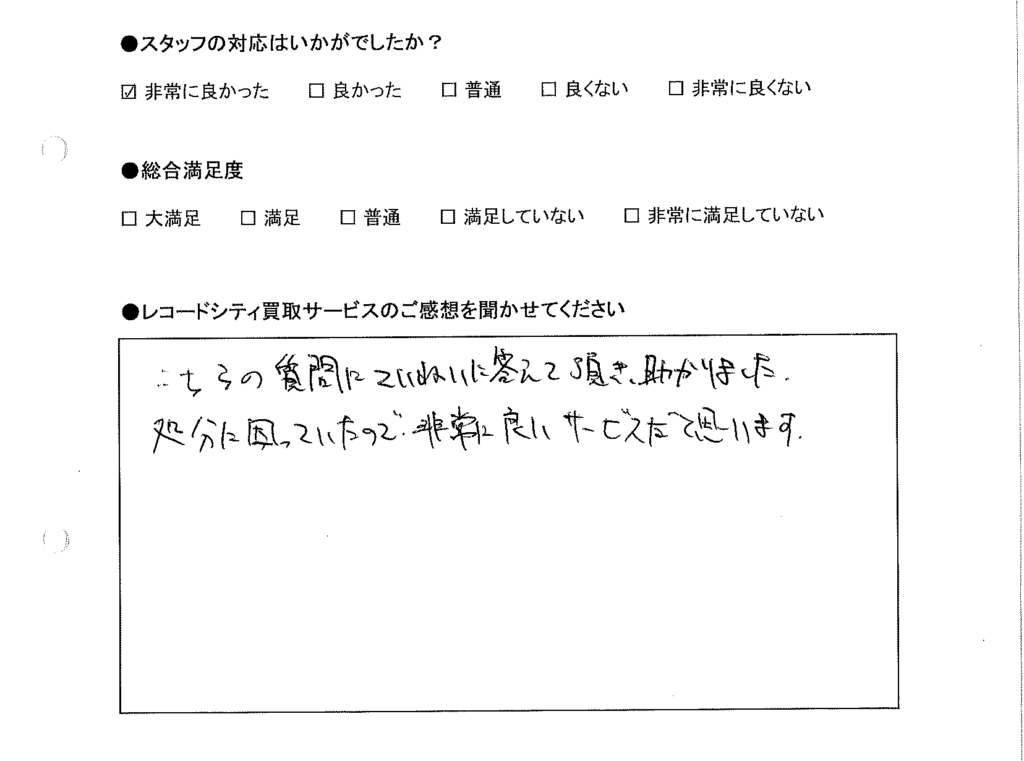 ●スタッフの対応はいかがでしたか？
☑ 非常に良かった　□ 良かった　□ 普通　□ 良くない　□ 非常に良くない
●総合満足度
□ 大満足　□ 満足　□ 普通　□ 満足していない　□ 非常に満足していない
●レコードシティ買取サービスのご感想を聞かせてください
こちらの質問にていねいに答えて頂き、助かりました。
処分に困っていたので、非常に良いサービスだと思います。